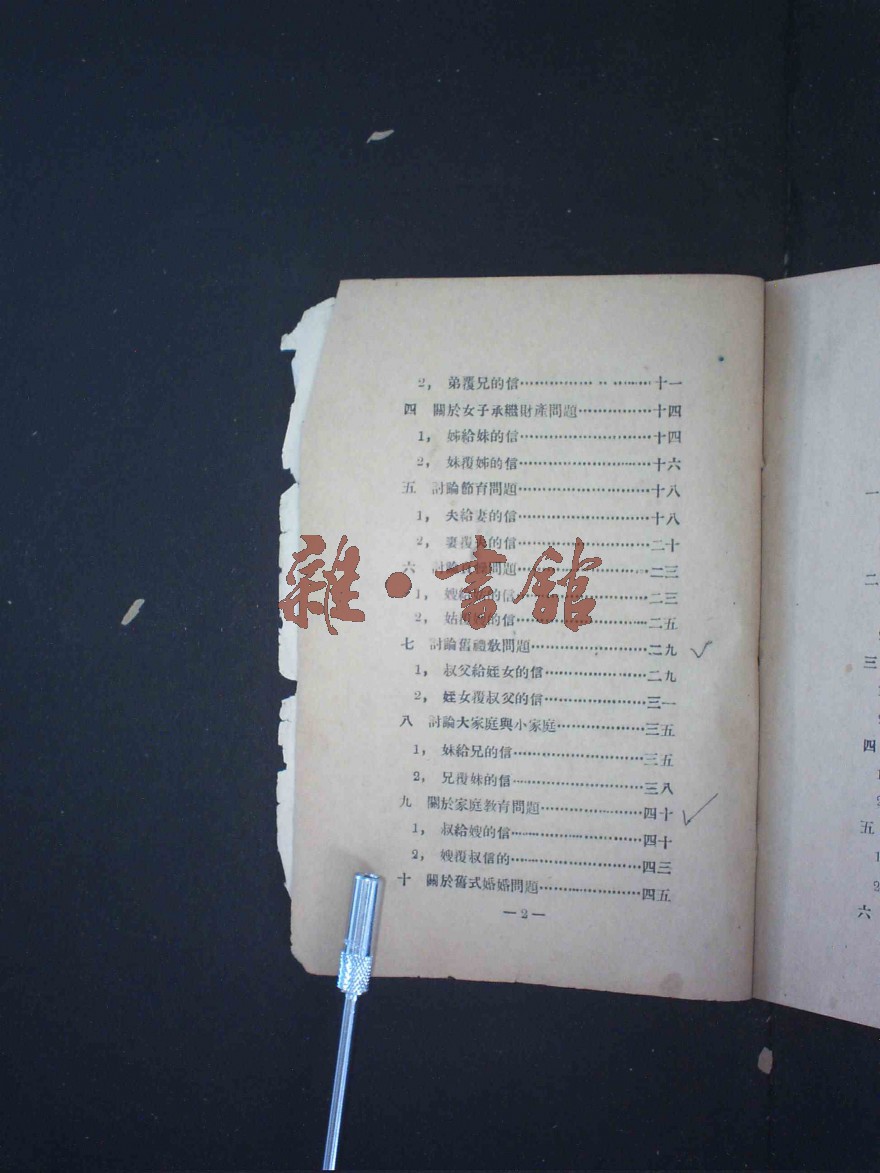 2, 弟覆兄的信……………………十一
四 關於女子承繼財產問題……………十四
1, 姊給妹的信……………………十四
2, 妹覆姊的信……………………十六
五 討論節育問題……………………十八
1, 夫給妻的信……………………十八
2, 妻覆夫的信……………………二十
六 討論 問題……………………二三
1, 嫂給 的信……………………二三
2, 姑 的信……………………二五
七 討論舊禮教問題……………………二九
1, 叔父給姪女的信……………………二九
2, 姪女覆叔父的信……………………三一
八 討論大家庭與小家庭……………………三五
1, 妹給兄的信……………………三五
2, 兄覆妹的信……………………三八
九 關於家庭教育問題……………………四十
1, 叔給嫂的信……………………四十
2, 嫂覆叔信的……………………四三
十 關於舊式婚婚問題……………………四五
—2—
雜·書館
一
二
三
四
1
2
五
1
2
六